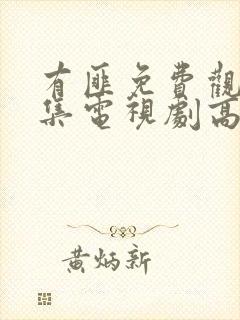 有匪免費觀
集電視劇高
黃炳新